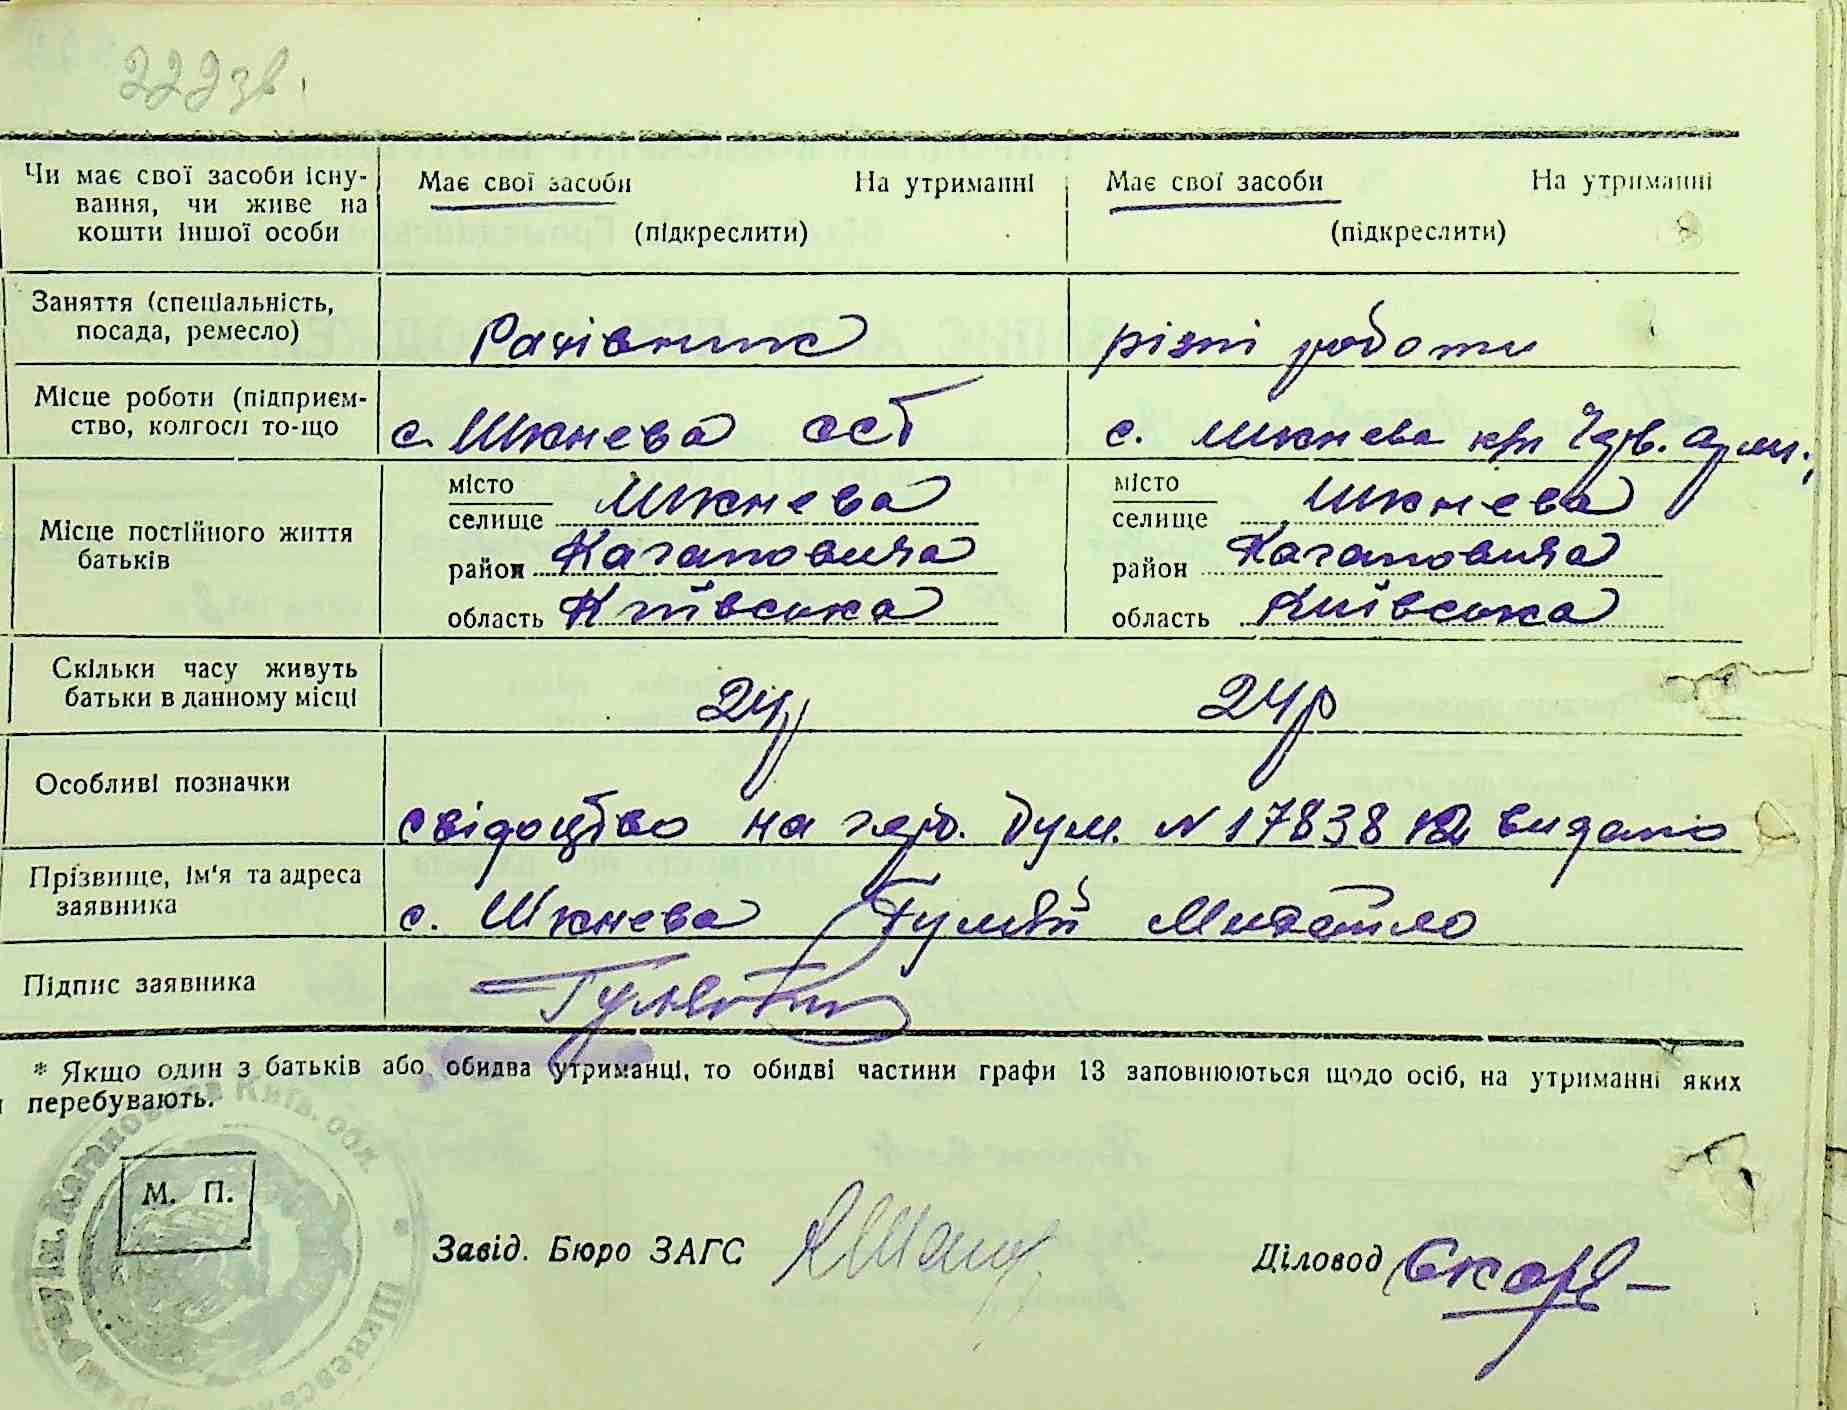 222зв.
Чи має свої засоби існу-
вання, чи живе на
кошти іншої особи
Має свої засоби На утриманні
(підкреслити)
Має свої засоби На утриманні
(підкреслити)
Заняття (спеціальність,
посада, ремесло)
Рахівник
різні роботи
Місце роботи (підприєм-
ство, колгосп то-що
с. Шкнева ССТ
с. Шкнева к/г Черв. Арм.
Місце постійного життя
батьків
місто
селище Шкнева
район Кагановича
область Київська
місто
селище Шкнева
район Кагановича
область Київська
Скільки часу живуть
батьки в данному місці
24р
24р
Особливі позначки
свідоцтво на N 17838 видано
Прізвище, ім'я та адреса
заявника
с. Шкнева Михайло
Підпис заявника
* Якщо один з батьків або обидва утриманці, то обидві частини графи 13 заповнюються щодо осіб, на утриманні яких
перебувають.
М. П.
Завід. Бюро ЗАГС
Діловод